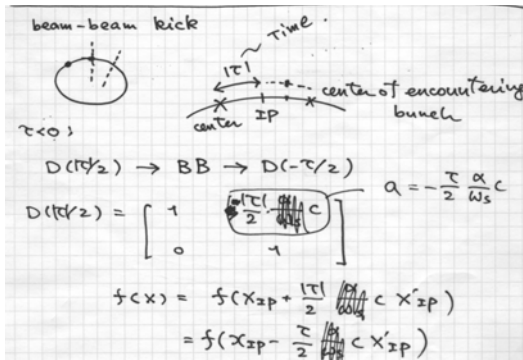 beam-beam kick
|τ| ~ Time.
center of encountering
bunch
center IP
τ<0;
D(|τ|/2) → BB → D(-τ/2)
a = -τ/2 α/ωs c
D(|τ|/2) = [ 1 |τ|/2 c
0 1 ]
f(x) = f(x_IP + |τ|/2 c x'_IP)
= f(x_IP - τ/2 c x'_IP)